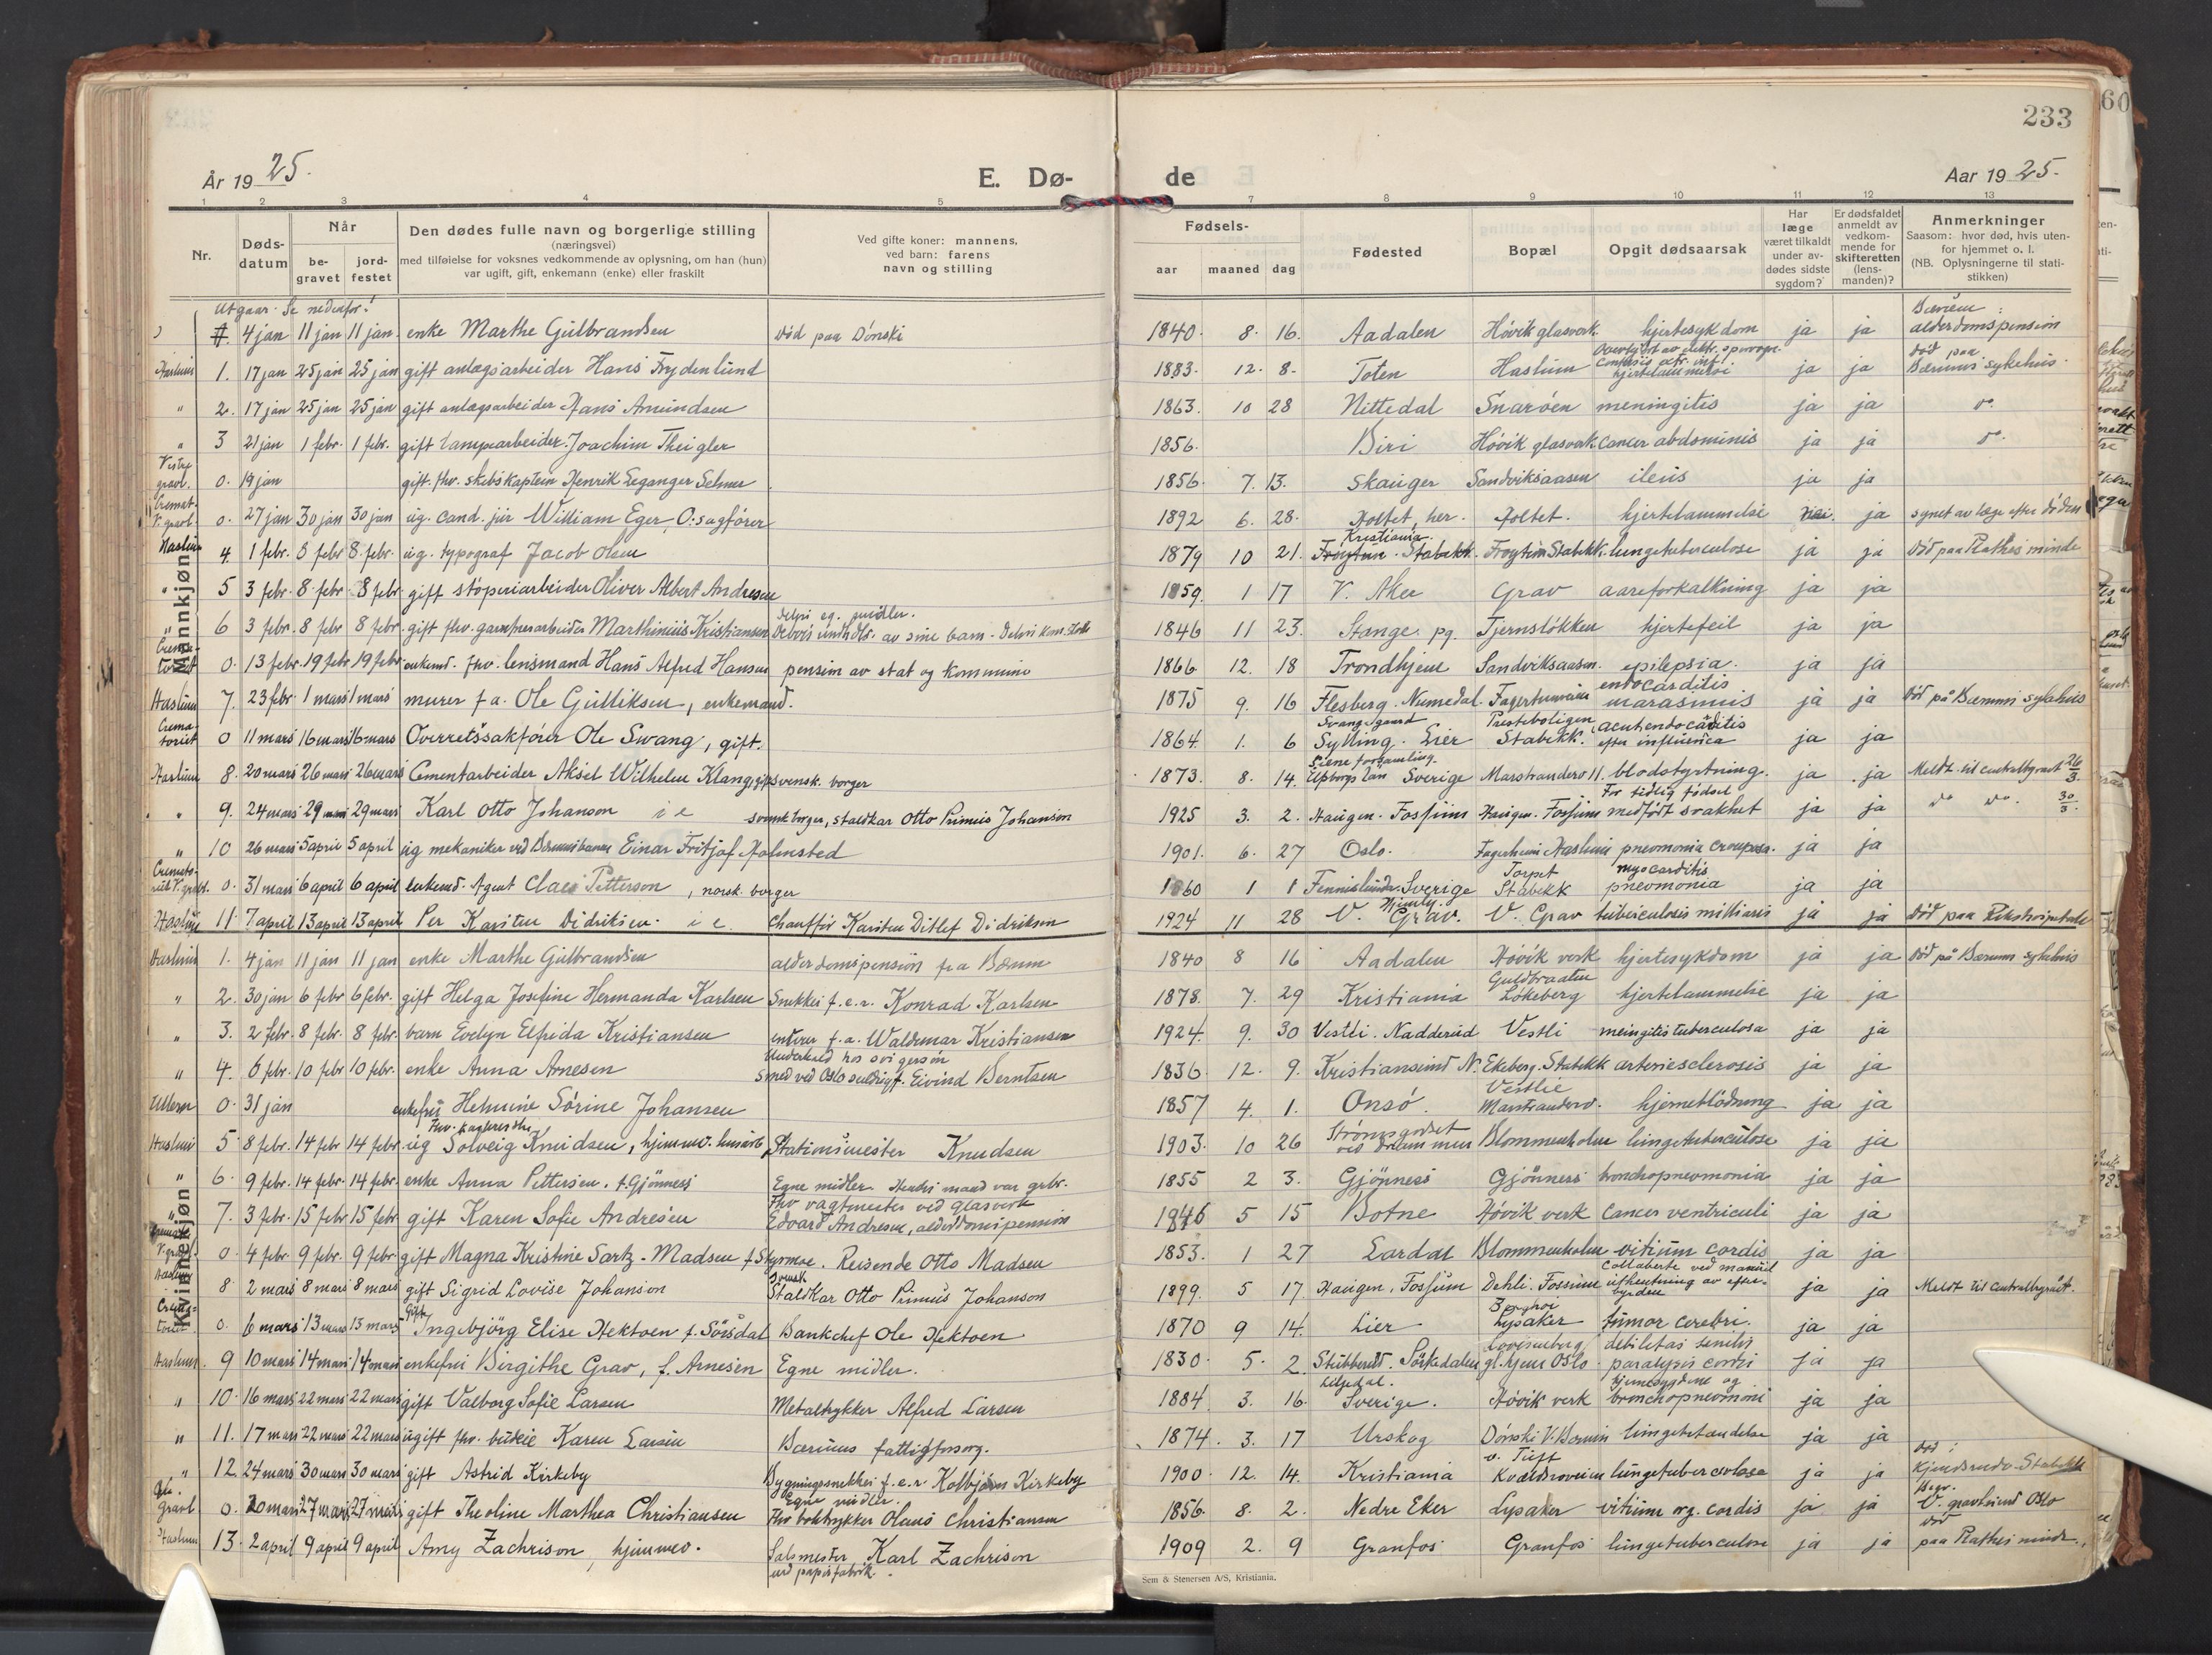 233
År 1925.
E. Dø-
de
Aar 1925.
1 2 3 4 5 7 8 9 10 11 12 13
Nr.
Døds-
datum
Når
be-
gravet
jord-
festet
Den dødes fulle navn og borgerlige stilling
(næringsvei)
med tilføielse for voksnes vedkommende av oplysning, om han (hun)
var ugift, gift, enkemann (enke) eller fraskilt
Ved gifte koner: mannens,
ved barn: farens
navn og stilling
Fødsels-
aar maaned dag
Fødested
Bopæl
Opgit dødsaarsak
Har
læge
været tilkaldt
under av-
dødes sidste
sygdom?
Er dødsfaldet
anmeldt av
vedkom-
mende for
skifteretten
(lens-
manden)?
Anmerkninger
Saasom: hvor død, hvis uten-
for hjemmet o. l.
(NB. Oplysningerne til stati-
stikken)
Mannkjøn
Utgaar. Se nedenfor!
4 jan 11 jan 11 jan enke Marthe Gulbrandsen død paa Dønski 1840. 8. 16. Aadalen Høvik glasverk. hjertesykdom ja ja Bærum alderdomspension
Haslum 1. 17 jan 25 jan 25 jan gift anlægsarbeider Hans Frydenlund 1883. 12. 8. Toten Haslum hjertelammelse ja ja død paa Bærums sykehus
" 2. 17 jan 25 jan 25 jan gift anlægsarbeider Hans Amundsen 1863. 10 28 Nittedal Snarøen meningitis ja ja do.
" 3 21 jan 1 febr. 1 febr. gift lampearbeider Joachim Theigler 1856. Biri Høvik glasverk cancer abdominis ja ja do.
Vestre gravl. 0. 19 jan gift. fhv. skibskaptein Henrik Leganger Selmer 1856. 7. 13. Skauger Sandviksaasen ileus ja ja
Cremat. V. gravl. 0. 27 jan 30 jan 30 jan ug. cand. jur William Eger, O.sagfører 1892 6. 28. Holtet, her. Holtet. hjertelammelse nei. ja synet av læge efter døden
Haslum 4. 1 febr. 8 febr 8 febr. ug. typograf Jacob Olsen 1879 10 21. Kristiania Frøytun Stabekk. lungetuberculose ja ja død paa Rathes minde
" 5 3 febr. 8 febr 8 febr. gift støperiarbeider Oliver Albert Andresen 1859. 1 17 V. Aker Grav aareforkalkning ja ja
" 6 3 febr. 8 febr 8 febr. gift fhv. Marthinius Kristiansen Delvis eg. midler. Delvis underh. av sine barn 1846 11 23. Stange pg. Tjernsløkken hjertefeil ja ja
Crematoriet 0. 13 febr. 19 febr 19 febr enkemd. fhv. lensmand Hans Alfred Hansen pension av stat og kommune 1866 12. 18 Trondhjem Sandviksaasen. epilepsia. ja ja
Haslum 7. 23 febr. 1 mars 1 mars murer f.a. Ole Gulliksen, enkemand. 1875 9. 16 Flesberg. Numedal. endocarditis marasmus ja ja død på Bærums sykehus
Crematoriet 0 11 mars 16 mars 16 mars Overretssakfører Ole Swang, gift. 1864. 1. 6 Svangsgaard Sylling. Lier Presteboligen Stabekk. acut endocarditis efter influenca ja ja
Haslum 8. 20 mars 26 mars 26 mars Cementarbeider Aksel Wilhelm Klang, gift svensk. borger 1873. 8. 14. Sverige Marstranderv 11. blodstyrtning. ja ja Meldt til centralbyraaet 26/3
" 9. 24 mars 29 mars 29 mars Karl Otto Johanson i e svensk borger, staldkar Otto Primus Johanson 1925 3. 2. Haugen. Fossum Haugen. Fossum For tidlig fødsel medfødt svakhet ja ja do do. 30/3.
" 10 26 mars 5 april 5 april ug mekaniker ved Bærumsbanen Einar Fritjof Holmsted 1901. 6. 27 Oslo. Fagerheim Haslum pneomonia crouposa. ja ja
Crematoriet V. gravl. 0. 31 mars 6 april 6 april enkemd. Agent Claes Petterson, norsk borger 1860 1 1 Sverige Torpet Stabekk myocarditis pneomonia ja ja
Haslum 11 7 april 13 april 13 april Per Karsten Didriksen. i e. Chauffør Karsten Ditlef Didriksen 1924 11 28 V. Grav. V. Grav tuberculosis milliaris ja ja død paa Rikshospitalet
Kvinnekjøn
Haslum 1. 4 jan 11 jan 11 jan enke Marthe Gulbrandsen alderdomspension fra Bærum 1840 8 16 Aadalen Høvik verk hjertesykdom ja ja død på Bærums sykehus
" 2. 30 jan 6 febr 6 febr. gift Helga Josefine Hermanda Karlsen Snekker f.e.r. Konrad Karlsen 1878. 7. 29 Kristiania Guldbraaten Løkeberg hjertelammelse ja ja
" 3. 2 febr. 8 febr. 8 febr. barn Evelyn Elfrida Kristiansen f.a. Waldemar Kristiansen 1924. 9. 30 Vestli. Nadderud Vestli meingitis tuberculosa ja ja
" 4. 6 febr. 10 febr 10 febr. enke Anna Arnesen Underhold hos svigersøn smed ved Oslo Eivind Berntsen 1836. 12. 9. Kristiansund N. Ekeberg. Stabekk arteriesclerosis ja ja
Ullern 0. 31 jan enkefru Helmine Sørine Johansen 1857 4. 1. Onsø. Vestlie Marstranderv. hjerneblødning ja ja
Haslum 5. 8 febr. 14 febr 14 febr. ug Solveig Knudsen, hjemmev. Stationsmester Knudsen 1903. 10 26 Strømsgodset ved Drammen Blommenholm lungetuberculose ja ja
" 6. 9 febr. 14 febr. 14 febr. enke Anna Pettersen. f. Gjønness Egne midler. Hendes mand var grbr. 1855 2 3. Gjønness Gjønness bronchopneomonia ja ja
" 7. 3 febr. 15 febr 15 febr gift Karen Sofie Andresen Fhv vagtmester ved glasverk Edvard Andresen, alderdomspension 1846 5 15 Botne Høvik verk cancer ventriculi ja ja
V. gravl. 0. 4 febr. 9 febr. 9 febr. gift Magna Kristine Sartz-Madsen f. Skyrmoe. Reisende Otto Madsen 1853. 1 27 Lardal Blommenholm vitium cordis ja ja
Haslum 8 2 mars 8 mars 8 mars gift Sigrid Lovise Johanson Svensk Staldkar Otto Primus Johanson 1899. 5 17. Haugen, Fossum Dehli. Fossum Collaberte ved manuel uthentning av efterbyrden ja ja Meldt til centralbyrået.
Crematoriet 0. 6 mars 13 mars 13 mars Gift Ingebjörg Elise Hektoen f. Sørsdal Bankchef Ole Hektoen 1870 9 14. Lier Lysaker tumor cerebri. ja ja
Haslum 9 10 mars 14 mars 14 mars enkefru Birgithe Grav, f. Arnesen Egne midler. 1830. 5. 2. Stubberud. Sørkedalen Lovisenberg gl. hjem Oslo debilitas senilis paralysis cordis ja ja
" 10. 16 mars 22 mars 22 mars gift Valborg Sofie Larsen Metaltrykker Alfred Larsen 1884 3. 16. Sverige. Høvik verk hjernesygdom og bronchopneomoni ja ja
" 11. 17 mars 22 mars 22 mars ugift fhv. budeie Karen Larsen Bærums fattigforsorg. 1874. 3. 17 Urskog Dønski V. Bærum lungebetændelse ja ja
" 12. 24 mars 30 mars 30 mars gift Astrid Kirkeby Bygningssnekker f.e.r Kolbjørn Kirkeby 1900. 12. 14. Kristiania lungetuberculose ja ja død: Stabekk
gravl 0. 20 mars 27 mars 27 mars gift Theoline Marthea Christiansen Egne midler. Fhv boktrykker Olaus Christiansen 1856. 8. 2. Nedre Eker Lysaker vitium org. cordis ja ja Begr. V. gravlund Oslo
Haslum 13. 2 april 9 april 9 april Amy Zachrison, hjemmev. Salsmester Karl Zachrison ved papirfabrik. 1909 2. 9 Granfos Granfos lungetuberculose ja ja død paa Rathes minde.
Sem & Stenersen A/S, Kristiania.